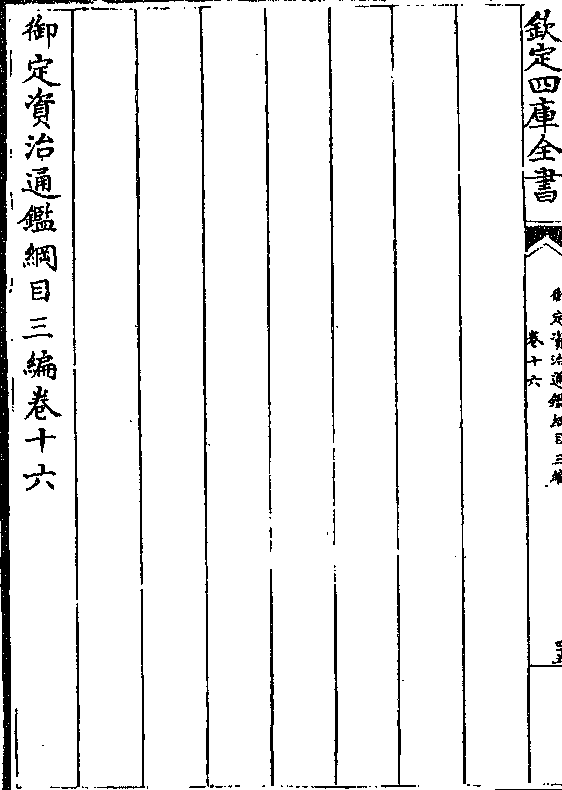 欽定四庫全書
御定資治通鑑綱目三編
卷十六
御定資治通鑑綱目三編卷十六